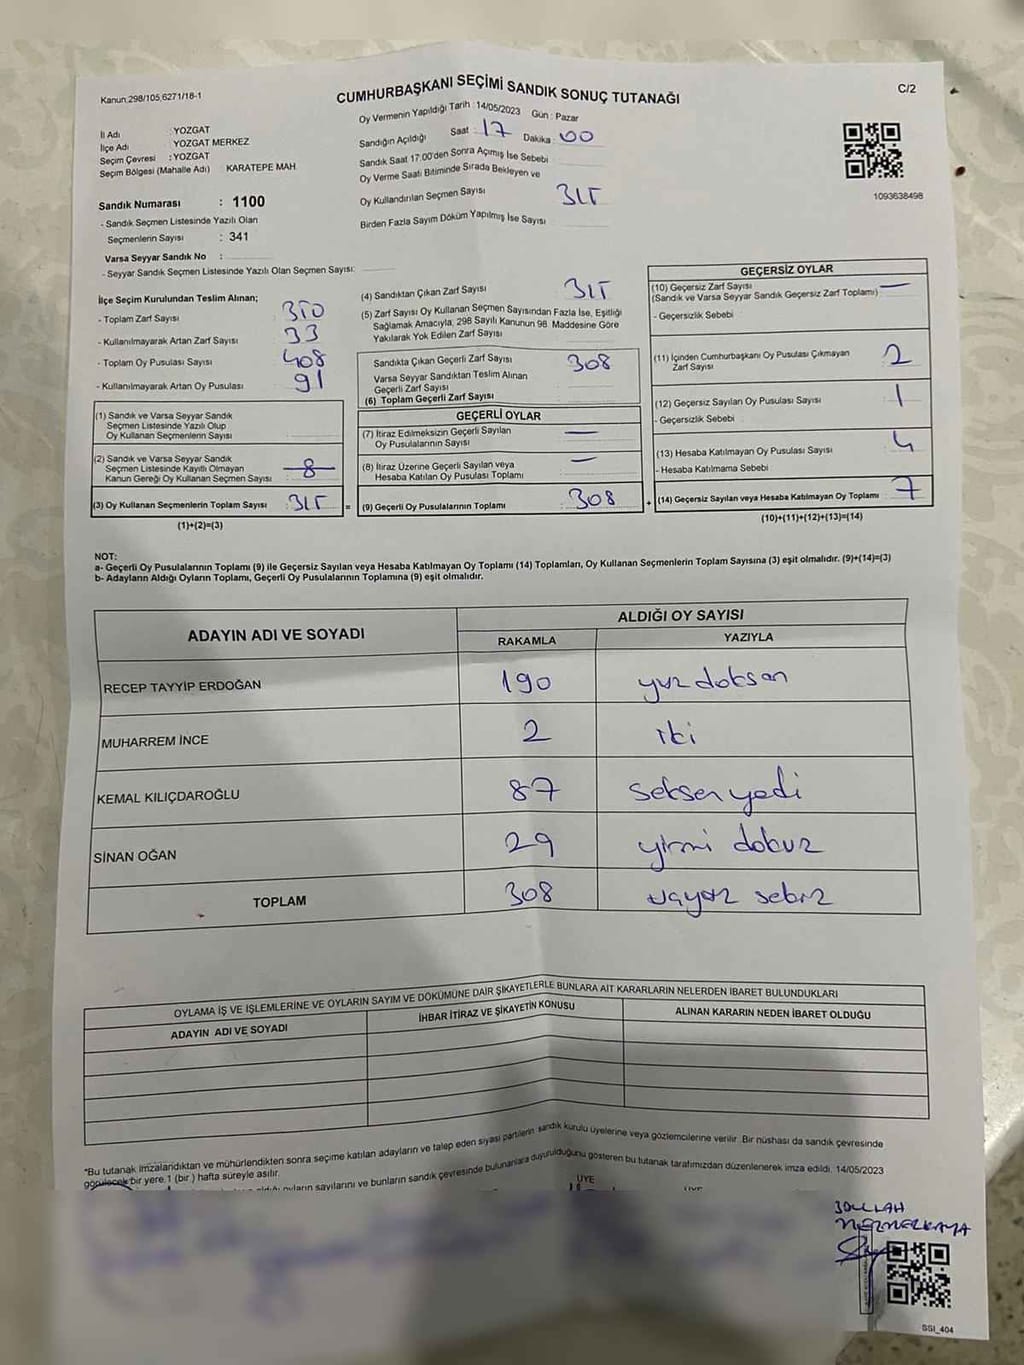 Kanun:298/105,6271/18-1
CUMHURBAŞKANI SEÇİMİ SANDIK SONUÇ TUTANAĞI
C/2
İl Adı : YOZGAT
İlçe Adı : YOZGAT MERKEZ
Seçim Çevresi : YOZGAT
Seçim Bölgesi (Mahalle Adı) KARATEPE MAH.
Sandık Numarası : 1100
- Sandık Seçmen Listesinde Yazılı Olan
Seçmenlerin Sayısı : 341
Varsa Seyyar Sandık No :
- Seyyar Sandık Seçmen Listesinde Yazılı Olan Seçmen Sayısı:
Oy Vermenin Yapıldığı Tarih : 14/05/2023 Gün : Pazar
Sandığın Açıldığı Saat : 17 Dakika : 00
Sandık Saat 17:00'den Sonra Açımış İse Sebebi
Oy Verme Saati Bitiminde Sırada Bekleyen ve
Oy Kullandırılan Seçmen Sayısı 315
Birden Fazla Sayım Döküm Yapılmış İse Sayısı
1093638498
İlçe Seçim Kurulundan Teslim Alınan;
- Toplam Zarf Sayısı 350
- Kullanılmayarak Artan Zarf Sayısı 33
- Toplam Oy Pusulası Sayısı 408
- Kullanılmayarak Artan Oy Pusulası 91
(1) Sandık ve Varsa Seyyar Sandık
Seçmen Listesinde Yazılı Olup
Oy Kullanan Seçmenlerin Sayısı
(2) Sandık ve Varsa Seyyar Sandık
Seçmen Listesinde Kayıtlı Olmayan
Kanun Gereği Oy Kullanan Seçmen Sayısı 8
(3) Oy Kullanan Seçmenlerin Toplam Sayısı 315 =
(1)+(2)=(3)
(4) Sandıktan Çıkan Zarf Sayısı 315
(5) Zarf Sayısı Oy Kullanan Seçmen Sayısından Fazla İse, Eşitliği
Sağlamak Amacıyla, 298 Sayılı Kanunun 98. Maddesine Göre
Yakılarak Yok Edilen Zarf Sayısı
Sandıkta Çıkan Geçerli Zarf Sayısı 308
Varsa Seyyar Sandıktan Teslim Alınan
Geçerli Zarf Sayısı
(6) Toplam Geçerli Zarf Sayısı
GEÇERLİ OYLAR
(7) İtiraz Edilmeksizin Geçerli Sayılan
Oy Pusulalarının Sayısı —
(8) İtiraz Üzerine Geçerli Sayılan veya
Hesaba Katılan Oy Pusulası Toplamı —
(9) Geçerli Oy Pusulalarının Toplamı 308 +
GEÇERSİZ OYLAR
(10) Geçersiz Zarf Sayısı —
(Sandık ve Varsa Seyyar Sandık Geçersiz Zarf Toplamı)
- Geçersizlik Sebebi
(11) İçinden Cumhurbaşkanı Oy Pusulası Çıkmayan
Zarf Sayısı 2
(12) Geçersiz Sayılan Oy Pusulası Sayısı 1
- Geçersizlik Sebebi
(13) Hesaba Katılmayan Oy Pusulası Sayısı 4
- Hesaba Katılmama Sebebi
(14) Geçersiz Sayılan veya Hesaba Katılmayan Oy Toplamı 7
(10)+(11)+(12)+(13)=(14)
NOT:
a- Geçerli Oy Pusulalarının Toplamı (9) ile Geçersiz Sayılan veya Hesaba Katılmayan Oy Toplamı (14) Toplamları, Oy Kullanan Seçmenlerin Toplam Sayısına (3) eşit olmalıdır. (9)+(14)=(3)
b- Adayların Aldığı Oyların Toplamı, Geçerli Oy Pusulalarının Toplamına (9) eşit olmalıdır.
ADAYIN ADI VE SOYADI
ALDIĞI OY SAYISI
RAKAMLA YAZIYLA
RECEP TAYYİP ERDOĞAN 190 yüz doksan
MUHARREM İNCE 2 iki
KEMAL KILIÇDAROĞLU 87 seksen yedi
SİNAN OĞAN 29 yirmi dokuz
TOPLAM 308 üçyüz sekiz
OYLAMA İŞ VE İŞLEMLERİNE VE OYLARIN SAYIM VE DÖKÜMÜNE DAİR ŞİKAYETLERLE BUNLARA AİT KARARLARIN NELERDEN İBARET BULUNDUKLARI
ADAYIN ADI VE SOYADI İHBAR İTİRAZ VE ŞİKAYETİN KONUSU ALINAN KARARIN NEDEN İBARET OLDUĞU
*Bu tutanak imzalandıktan ve mühürlendikten sonra seçime katılan adayların ve talep eden siyasi partilerin sandık kurulu üyelerine veya gözlemcilerine verilir. Bir nüshası da sandık çevresinde
görülecek bir yere 1 (bir ) hafta süreyle asılır.
oyların sayılarını ve bunların sandık çevresinde bulunanlara duyurulduğunu gösteren bu tutanak tarafımızdan düzenlenerek imza edildi. 14/05/2023
ÜYE
SSI_404